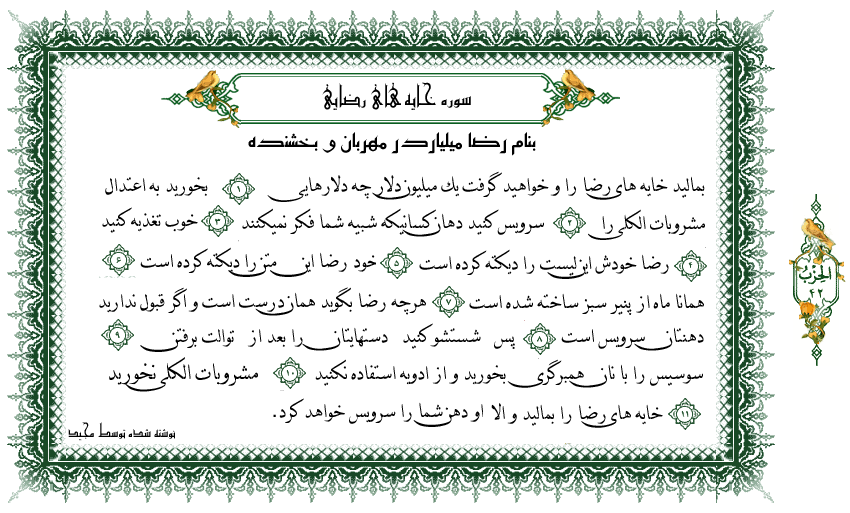 سوره خایه های رضایی
بنام رضا میلیاردر مهربان و بخشنده
بمالید خایه های رضا را و خواهید گرفت یك میلیون دلار چه دلارهایی ۱ بخورید به اعتدال
مشروبات الکلی را ۲ سرویس کنید دهان کسانیکه شبیه شما فکر نمیکنند ۳ خوب تغذیه کنید
۴ رضا خودش این لیست را دیکته کرده است ۵ خود رضا این متن را دیکته کرده است ۶
همانا ماه از پنیر سبز ساخته شده است ۷ هرچه رضا بگوید همان درست است و اگر قبول ندارید
دهنتان سرویس است ۸ پس شستشو کنید دستهایتان را بعد از توالت برفتن ۹
سوسیس را با نان همبرگری بخورید و از ادویه استفاده نکنید ۱۰ مشروبات الکلی نخورید
۱۱ خایه های رضا را بمالید و الا او دهن شما را سرویس خواهد کرد.
نوشته شده توسط مجید
الحزب
٤٢